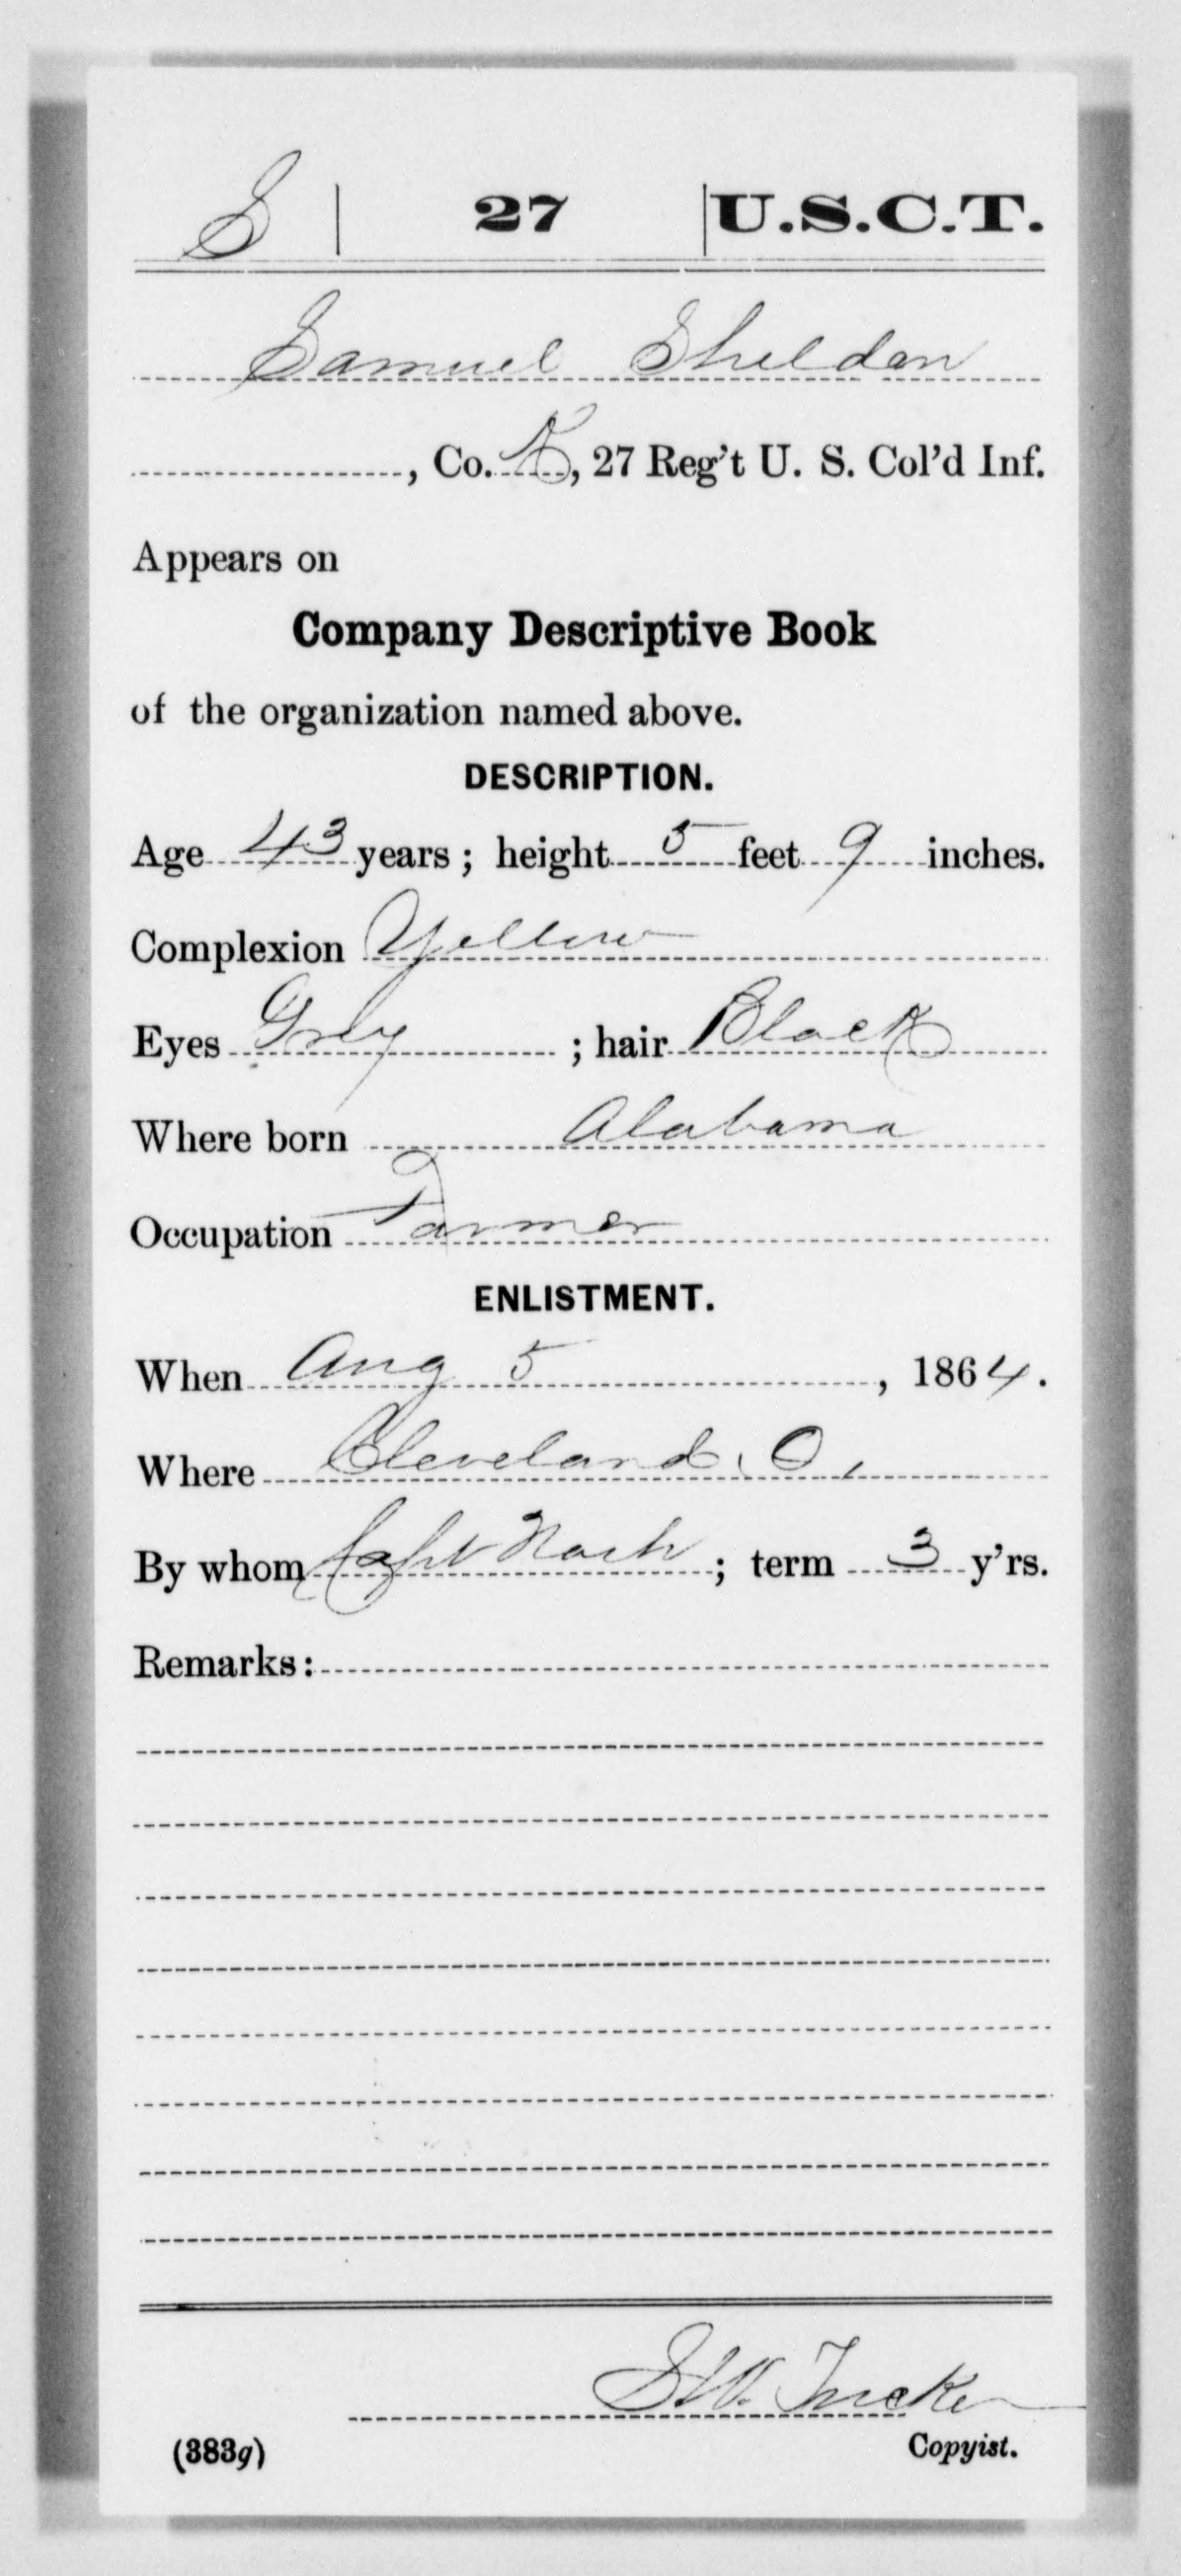 S | 27 | U.S.C.T.
Samuel Sheldon
, Co. K, 27 Reg't U. S. Col'd Inf.
Appears on
Company Descriptive Book
of the organization named above.
DESCRIPTION.
Age 43 years; height 5 feet 9 inches.
Complexion Yellow
Eyes Grey ; hair Black
Where born Alabama
Occupation Farmer
ENLISTMENT.
When Aug 5, 1864.
Where Cleveland, O,
By whom Capt Nash; term 3 y'rs.
Remarks:
S.W. Tucker
(383g) Copyist.